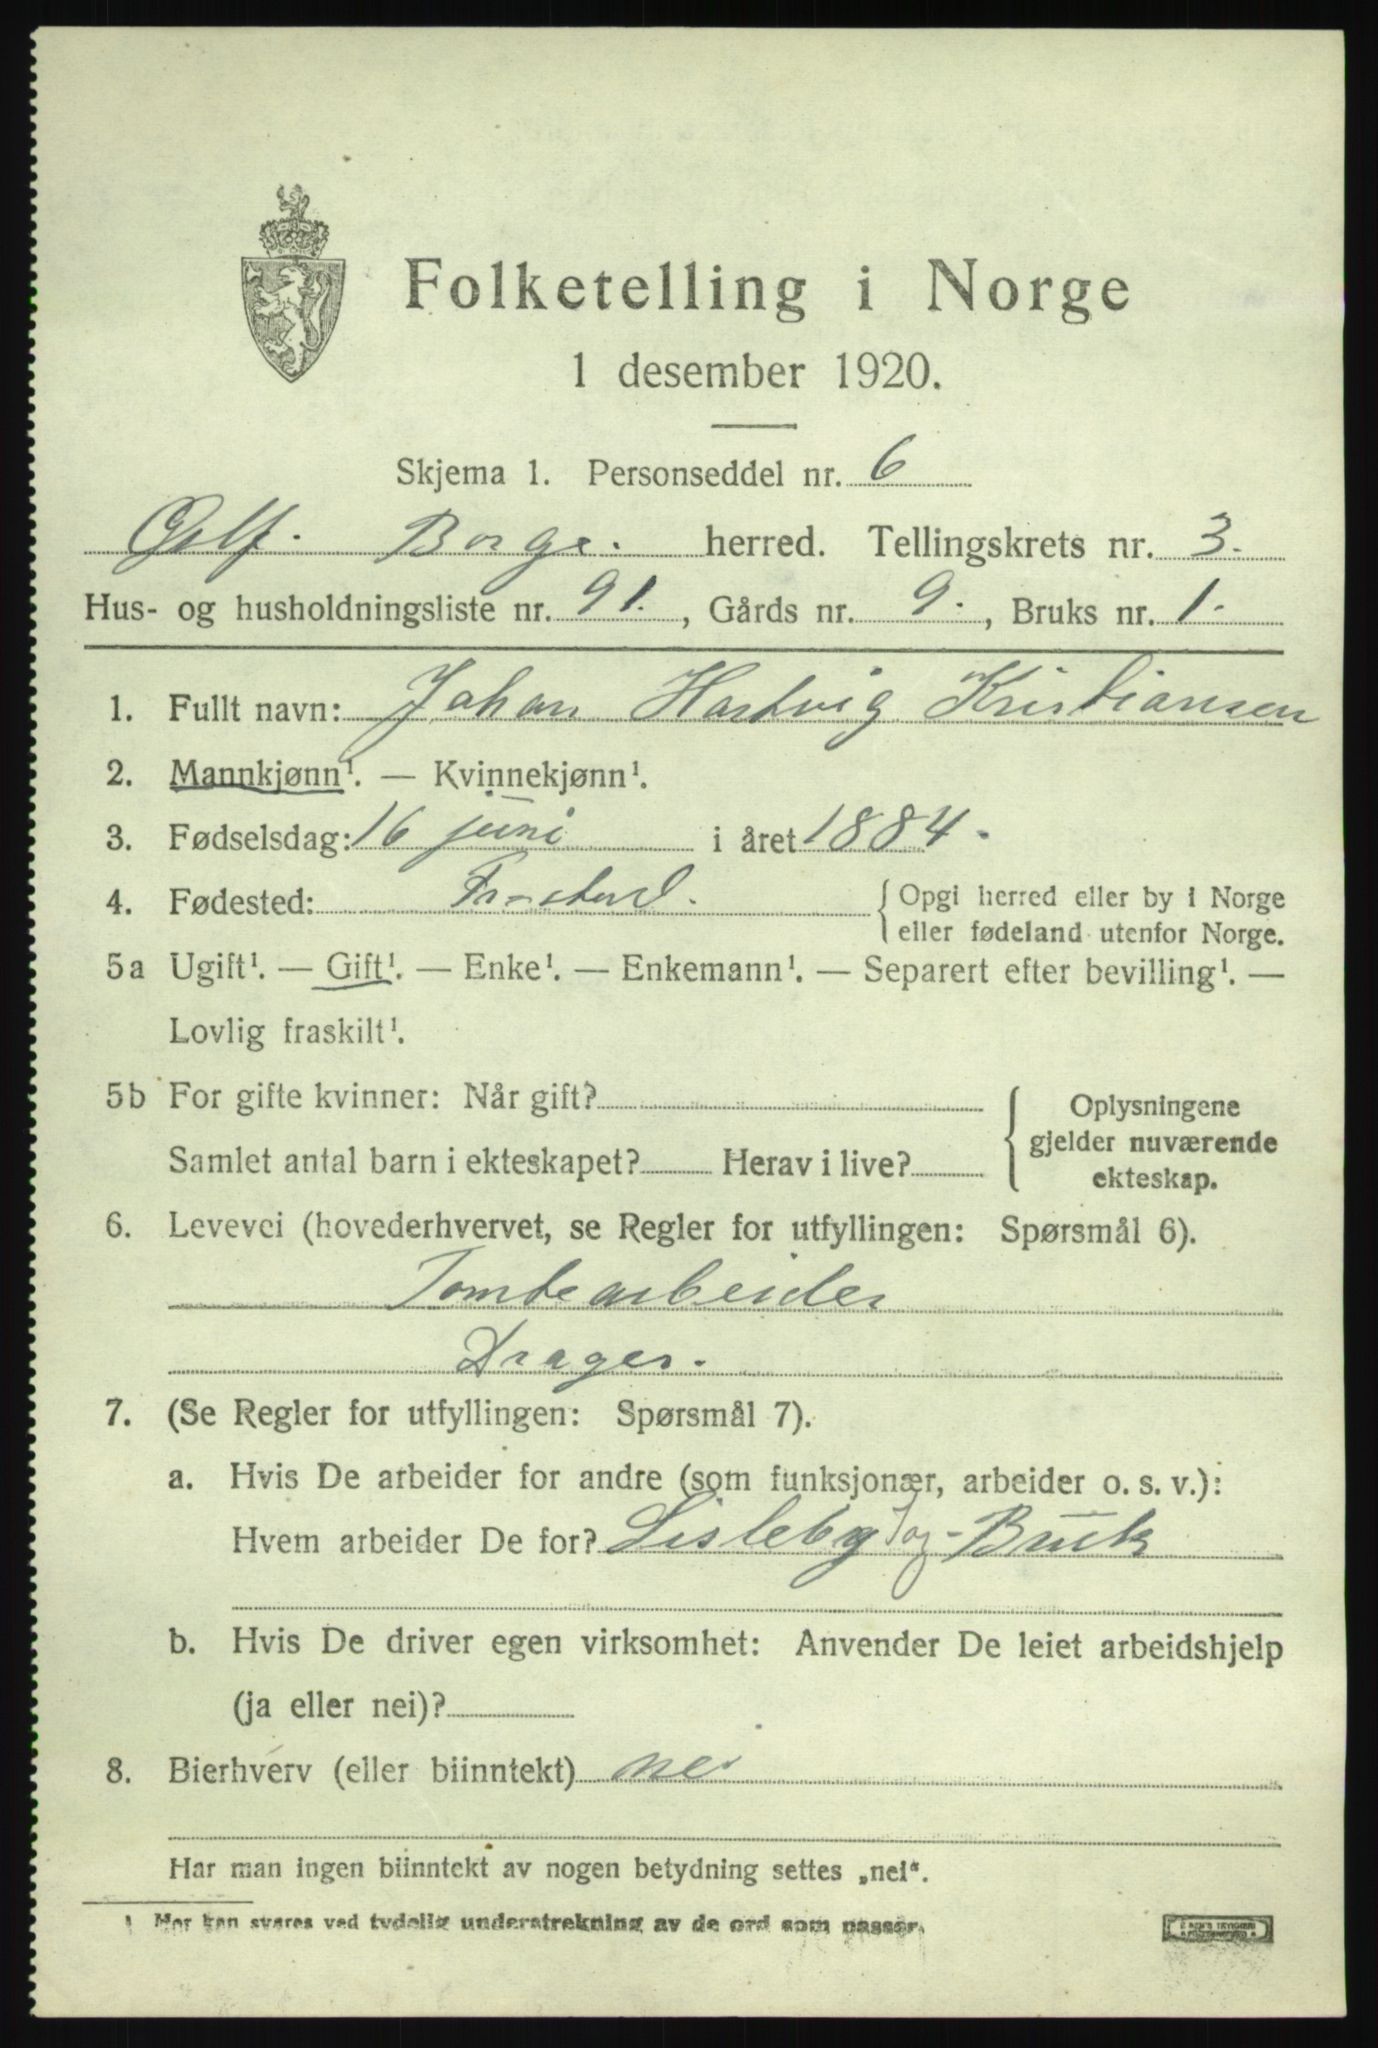 Folketelling i Norge
1 desember 1920.
Skjema 1. Personseddel nr. 6
Borge. herred. Tellingskrets nr. 3.
Hus- og husholdningsliste nr. 91., Gårds nr. 9., Bruks nr. 1.
1. Fullt navn: Johan Hartvig Kristiansen
2. Mannkjønn¹. — Kvinnekjønn¹.
3. Fødselsdag: 16 juni i året 1884.
4. Fødested: { Opgi herred eller by i Norge
eller fødeland utenfor Norge.
5a Ugift¹. — Gift¹. — Enke¹. — Enkemann¹. — Separert efter bevilling¹. —
Lovlig fraskilt¹.
5b For gifte kvinner: Når gift? { Oplysningene
gjelder nuværende
Samlet antal barn i ekteskapet? Herav i live?
ekteskap.
6. Levevei (hovederhvervet, se Regler for utfyllingen: Spørsmål 6).
Tomtearbeider
Drager.
7. (Se Regler for utfyllingen: Spørsmål 7).
a. Hvis De arbeider for andre (som funksjonær, arbeider o. s. v.):
Hvem arbeider De for? Lisleby Sag-Bruk
b. Hvis De driver egen virksomhet: Anvender De leiet arbeidshjelp
(ja eller nei)?
8. Bierhverv (eller biinntekt) nei
Har man ingen biinntekt av nogen betydning settes „nei“.
¹ Mer kan svares ved tydelig understrekning av de ord som passer.